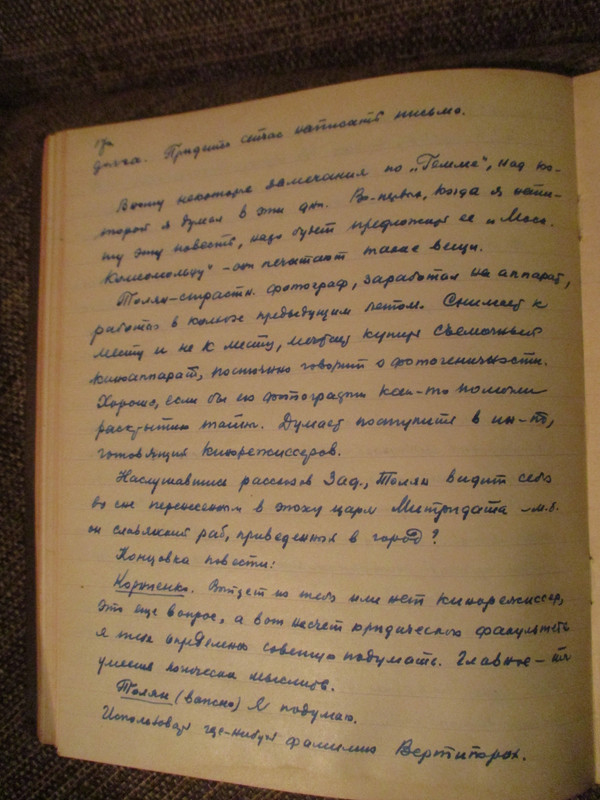 дача. Придется сейчас написать письмо.
Вношу некоторые замечания по „Гемме“, над ко-
торой я думал в эти дни. Во-первых, когда я напи-
шу эту повесть, надо будет предложить ее и „Моск.
Комсомольцу“ – он печатает такие вещи.
Толян – страстн. фотограф, заработал на аппарат,
работая в колхозе предыдущим летом. Снимает к
месту и не к месту, мечтает купить съемочный
киноаппарат, постоянно говорит о фотогеничности.
Хорошо, если бы его фотографии как-то помогли
раскрытию тайны. Думает поступить в ин-т,
готовящий кинорежиссеров.
Наслушавшись рассказов Зад., Толян видит себя
во сне перенесенным в эпоху царя Митридата – м.б.
он славянский раб, приведенный в город?
Концовка повести:
Короленко. Выйдет из тебя или нет кинорежиссер,
это еще вопрос, а вот насчет юридического факультета
я тебе определенно советую подумать. Главное – это
умение логически мыслить.
Толян (важно) Я подумаю.
Использовать где-нибудь фамилию Вертипорох.